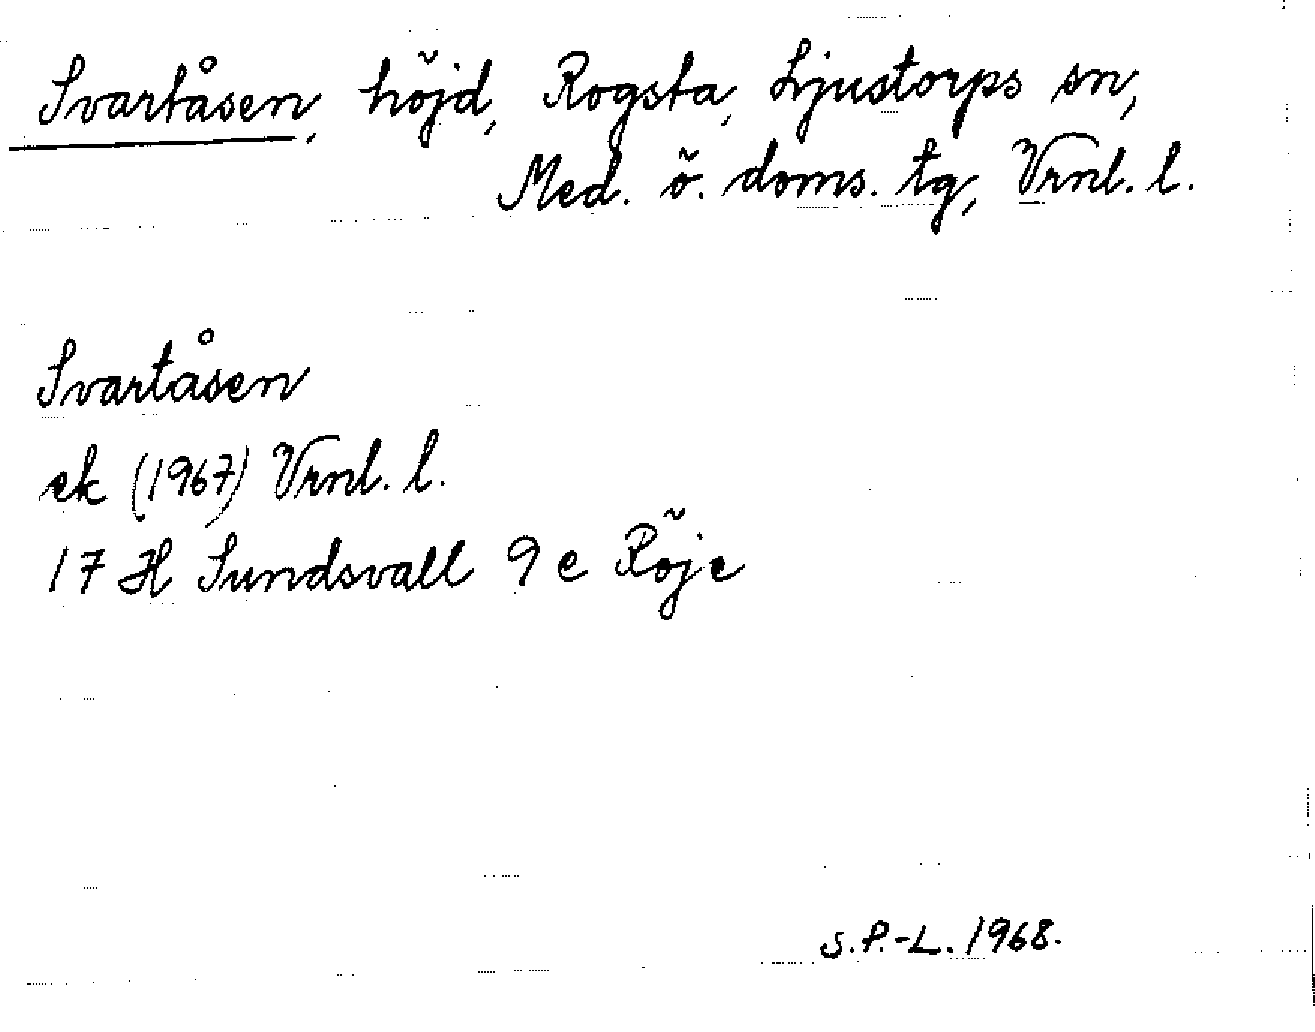 Svartåsen, höjd, Rogsta, Ljustorps sn,
Med. ö. doms. tg, Vrnl. l.
Svartåsen
ek (1967) Vrnl. l.
17 H Sundsvall 9 e Röje
S.P.-L. 1968.